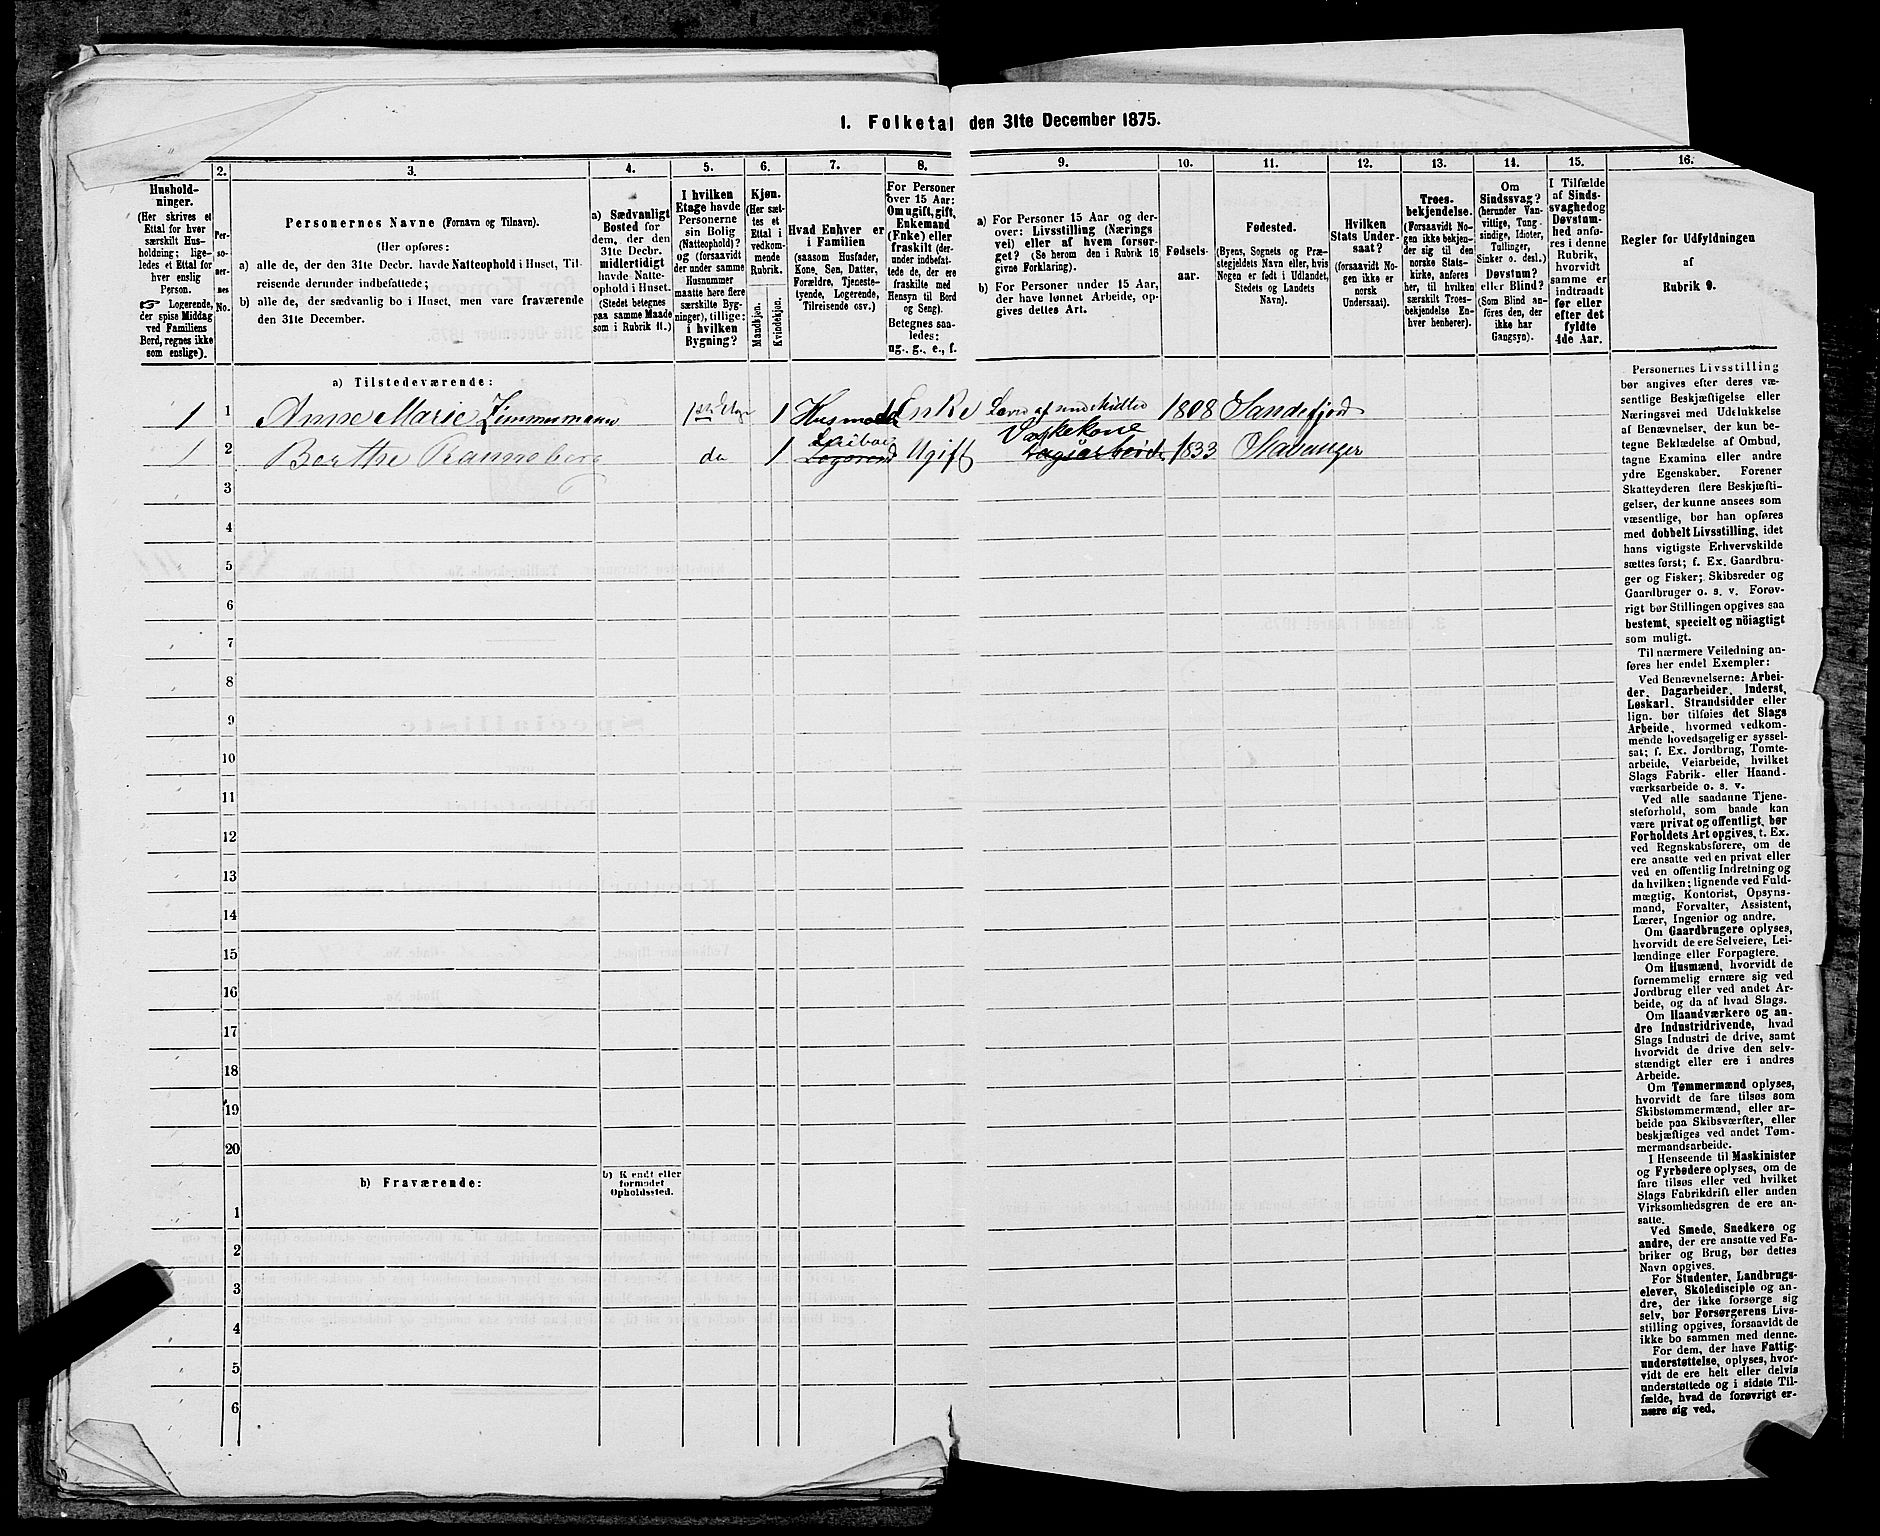 1. Folketal den 31te December 1875.
1.
2.
3.
4.
5.
6.
7.
8.
9.
10.
11.
12.
13.
14.
15.
16.
Hushold-
ninger.
(Her skrives et
Ettal for hver
særskilt Hus-
holdning; lige-
ledes et Ettal for
hver enslig
Person.
☞ Logerende,
der spise Middag
ved Familiens
Bord, regnes ikke
som enslige).
Per-
so-
ner-
nes
No.
Personernes Navne (Fornavn og Tilnavn).
(Her opføres:
a) alle de, der den 31te Decbr. havde Natteophold i Huset, Til-
reisende derunder indbefattede;
b) alle de, der sædvanlig bo i Huset, men vare fraværende
den 31te December.
a) Sædvanligt
Bosted for
dem, der den
31te Decbr.
midlertidigt
havde Natte-
ophold i Huset.
(Stedet betegnes
paa samme Maade
som i Rubrik 11.)
I hvilken
Etage havde
Personerne
sin Bolig
(Natteophold)?
og (forsaavidt
der under samme
Husnummer
maatte høre flere
særskilte Byg-
ninger), tillige:
i hvilken
Bygning?
Kjøn.
(Her sæt-
tes et
Ettal i
vedkom-
mende
Rubrik.
Mandkjøn.
Kvindekjøn.
Hvad Enhver er
i Familien
(saasom Husfader,
Kone, Søn, Datter,
Forældre, Tjeneste-
tyende, Logerende,
Tilreisende osv.)
For Personer
over 15 Aar:
Om ugift, gift,
Enkemand
(Enke) eller
fraskilt (der-
under indbefat-
tede de, der ere
fraskilte med
Hensyn til Bord
og Seng).
Betegnes saa-
ledes:
ug., g., e., f.
a) For Personer 15 Aar og der-
over: Livsstilling (Nærings
vei) eller af hvem forsør-
get? (Se herom den i Rubrik 16
givne Forklaring).
b) For Personer under 15 Aar,
der have lønnet Arbeide, op-
gives dettes Art.
Fødsels-
aar.
Fødested.
(Byens, Sognets og Præ-
stegjeldets Navn eller, hvis
Nogen er født i Udlandet,
Stedets og Landets
Navn).
Hvilken
Stats Under-
saat?
(forsaavidt No-
gen ikke er
norsk
Undersaat).
Troes-
bekjendelse.
(Forsaavidt No-
gen ikke bekjen-
der sig til den
norske Stats-
kirke, anføres
her, til hvilken
særskilt Troes-
bekjendelse En-
hver henhører).
Om
Sindssvag?
(herunder Van-
vittige, Idioter,
Tullinger,
Sinker o. desl.)
Døvstum?
eller Blind?
(Som Blind an-
føres den, der
ikke har
Gangsyn).
I Tilfælde
af Sinds-
svaghed og
Døvstum-
hed anfø-
res i denne
Rubrik,
hvorvidt
samme er
indtraadt
før eller
efter det
fyldte
4de Aar.
Regler for Udfyldningen
af
Rubrik 9.
a) Tilstedeværende:
1 1 Anne Marie Zimmermann 1ste Etage 1 Husmoder Enke Lever af sine Midler 1808 Sandefjord
Vaskekone
1 2 Berthe Ranneberg do 1 Logerende Ugift 1833 Stavanger
3
4
5
6
7
8
9
10
11
12
13
14
15
16
17
18
19
20
b) Fraværende:
b) Kjendt eller
formodet
Opholdssted.
1
2
3
4
5
6
Personernes Livsstilling
bør angives efter deres væ-
sentlige Beskjæftigelse eller
Næringsvei med Udelukkelse
af Benævnelser, der kun be-
tegne Beklædelse af Ombud,
tagne Examina eller andre
ydre Egenskaber. Forener
Skatteyderen flere Beskjæfti-
gelser, der kunne ansees som
væsentlige, bør han opføres
med dobbelt Livsstilling, idet
hans vigtigste Erhvervskilde
sættes først; f. Ex. Gaardbru-
ger og Fisker; Skibsreder og
Gaardbruger o. s. v. Forøv-
rigt bør Stillingen opgives saa
bestemt, specielt og nöiagtigt
som muligt.
Til nærmere Veiledning an-
føres her endel Exempler:
Ved Benævnelserne: Arbei-
der, Dagarbeider, Inderst,
Løskarl, Strandsidder eller
lign. bør tilføies det Slags
Arbeide, hvormed vedkom-
mende hovedsagelig er syssel-
sat; f. Ex. Jordbrug, Tomte-
arbeide, Veiarbeide, hvilket
Slags Fabrik- eller Haand-
værksarbeide o. s. v.
Ved alle saadanne Tjene-
steforhold, som baade kan
være privat og offentligt, bør
Forholdets Art opgives, t. Ex.
ved Regnskabsførere, om de
ere ansatte ved en privat eller
ved en offentlig Indretning og
da hvilken; lignende ved Fuld-
mægtig, Kontorist, Opsyns-
mand, Forvalter, Assistent,
Lærer, Ingeniør og andre.
Om Gaardbrugere oplyses,
hvorvidt de ere Selveiere, Lei-
lændinge eller Forpagtere.
Om Husmænd, hvorvidt de
fornemmelig ernære sig ved
Jordbrug eller ved andet Ar-
beide, og da af hvad Slags.
Om Haandværkere og an-
dre Industridrivende, hvad
Slags Industri de drive, samt
hvorvidt de drive den selv-
stændigt eller ere i andres
Arbeide.
Om Tømmermænd oplyses,
hvorvidt de fare tilsøs som
Skibstømmermænd, eller ar-
beide paa Skibsværfter, eller
beskjæftiges ved andet Tøm-
mermandsarbeide.
I Henseende til Maskinister
og Fyrbødere oplyses, om de
fare tilsøs eller ved hvilket
Slags Fabrikdrift eller anden
Virksomhedsgren de ere an-
satte.
Ved Smede, Snedkere og
andre, der ere ansatte ved Fa-
briker og Brug, bør dettes
Navn opgives.
For Studenter, Landbrugs-
elever, Skoledisciple og an-
dre, der ikke forsørge sig
selv, bør Forsørgerens Livs-
stilling opgives, forsaavidt de
ikke bo sammen med denne.
For dem, der have Fattig-
understøttelse, oplyses, hvor-
vidt de ere helt eller delvis
understøttede og i sidste Til-
fælde, hvad de forøvrigt er-
nære sig ved.